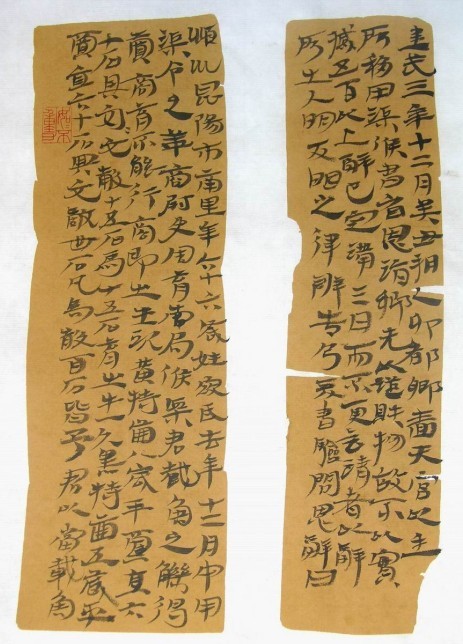 建武三年十二月癸丑朔乙卯都鄉嗇夫宮以廷
所移甲渠候書召恩詣鄉先以證財物故不以實
臧五百以上辭已定滿三日而不更言請者以辭
所出入罪反罪之律辨告乃爰書驗問恩辭曰
潁川昆陽市南里年六十六歲姓寇氏去年十二月中甲
渠令史華商尉史周育當為候粟君載魚之觻得
賣商育不能行商即出牛一頭黃特齒八歲平賈直六
十石與交穀十五石為十五石育出牛一頭黑特齒五歲平
賈直六十石與交穀卌石凡為穀百石皆予君以當載魚